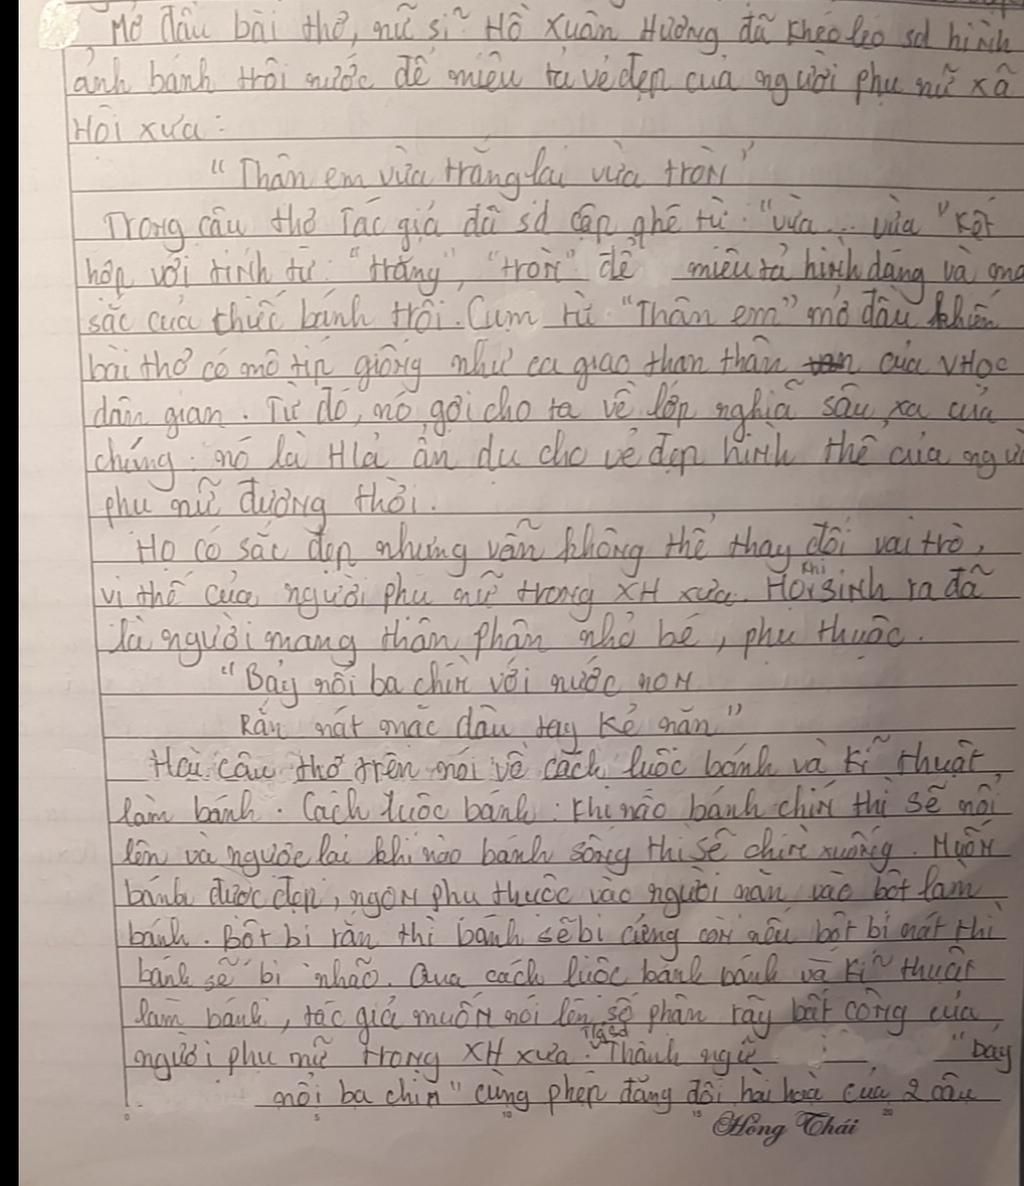 Mở đầu bài thơ, nữ sĩ Hồ Xuân Hương đã khéo léo sd hình
ảnh bánh trôi nước để miêu tả vẻ đẹp của người phụ nữ xã
Hội xưa:
"Thân em vừa trắng lại vừa tròn"
Trong câu thơ Tác giả đã sd cặp ghệ từ "vừa... vừa" kết
hợp với tính từ "trắng", "tròn" để miêu tả hình dáng và
sắc của thức bánh trôi. Cụm từ "Thân em" mở đầu khiến
bài thơ có mô típ giống như ca giao than thân của VHọc
dân gian. Từ đó, nó gợi cho ta về lớp nghĩa sâu xa của
chúng: nó là Hả ẩn dụ cho vẻ đẹp hình thể của
phụ nữ đương thời.
Họ có sắc đẹp nhưng vẫn không thể thay đổi vai trò,
vị thế của người phụ nữ trong XH xưa. Họ khi sinh ra đã
là người mang thân phận nhỏ bé, phụ thuộc.
"Bảy nổi ba chìn với nước non
Rắn nát mặc dầu tay kẻ nặn"
Hai câu thơ trên nói về cách luộc bánh và kĩ thuật
làm bánh. Cách luộc bánh: khi nào bánh chín thì sẽ nổi
lên và ngược lại khi nào bánh sống thì sẽ chìn xuống. Muốn
bánh được đẹp, ngon phụ thuộc vào người nặn vào bột làm
bánh. Bột bị rắn thì bánh sẽ bị cứng còn nếu bột bị nát thì
bánh sẽ bị nhão. Qua cách luộc bánh bánh và kĩ thuật
làm bánh, tác giả muốn nói lên số phận rẫy bất công của
người phụ nữ trong XH xưa. Tg sd Thành ngữ "bảy
nổi ba chìn" cùng phép đăng đối hài hoà của 2 câu
Hồng Thái